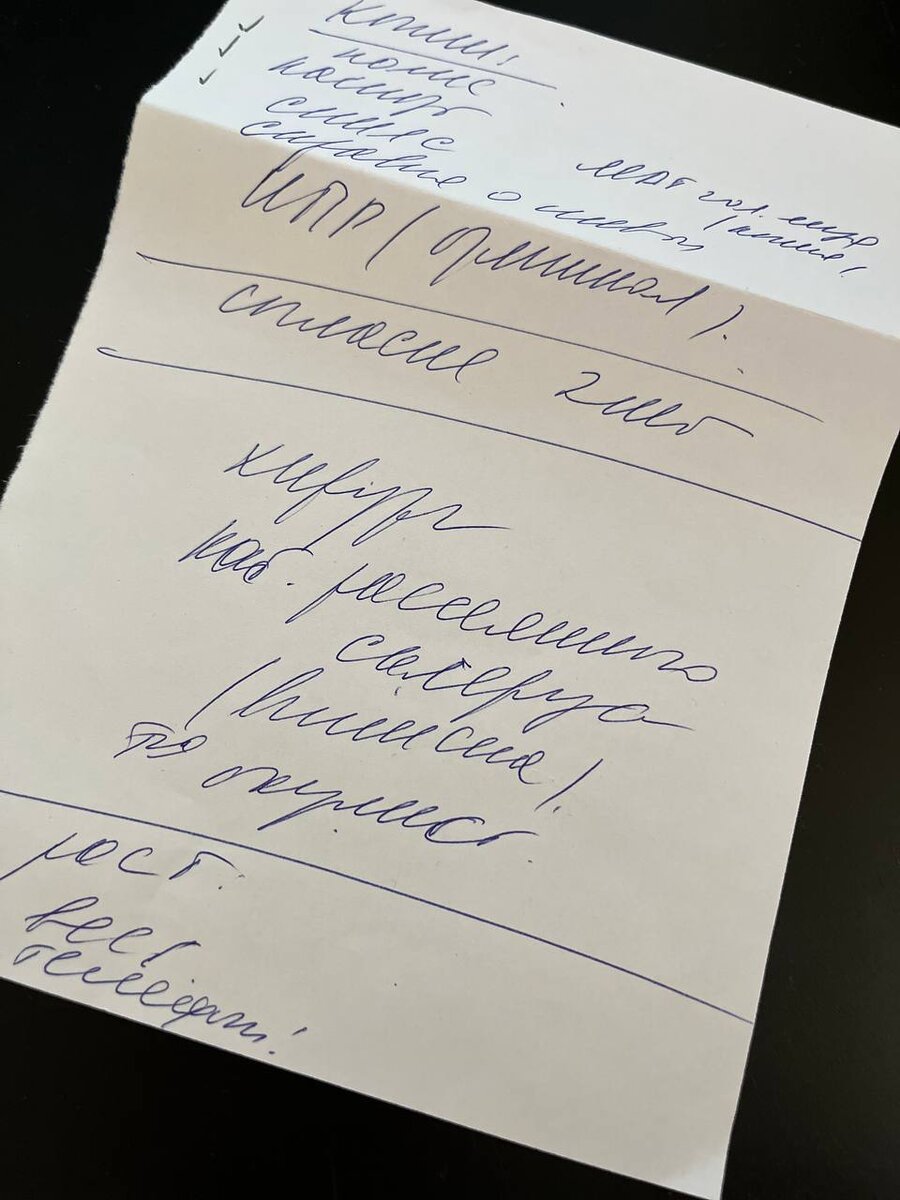 копии:
полис
паспорт
снилс
справка о
МРТ гол. мозга
(копия)
ИПР (оригинал).
согласие 2 шт
хирург
каб. рассеянного
склероза
(выписка).
окулист.
рост.
вес.
телефон!